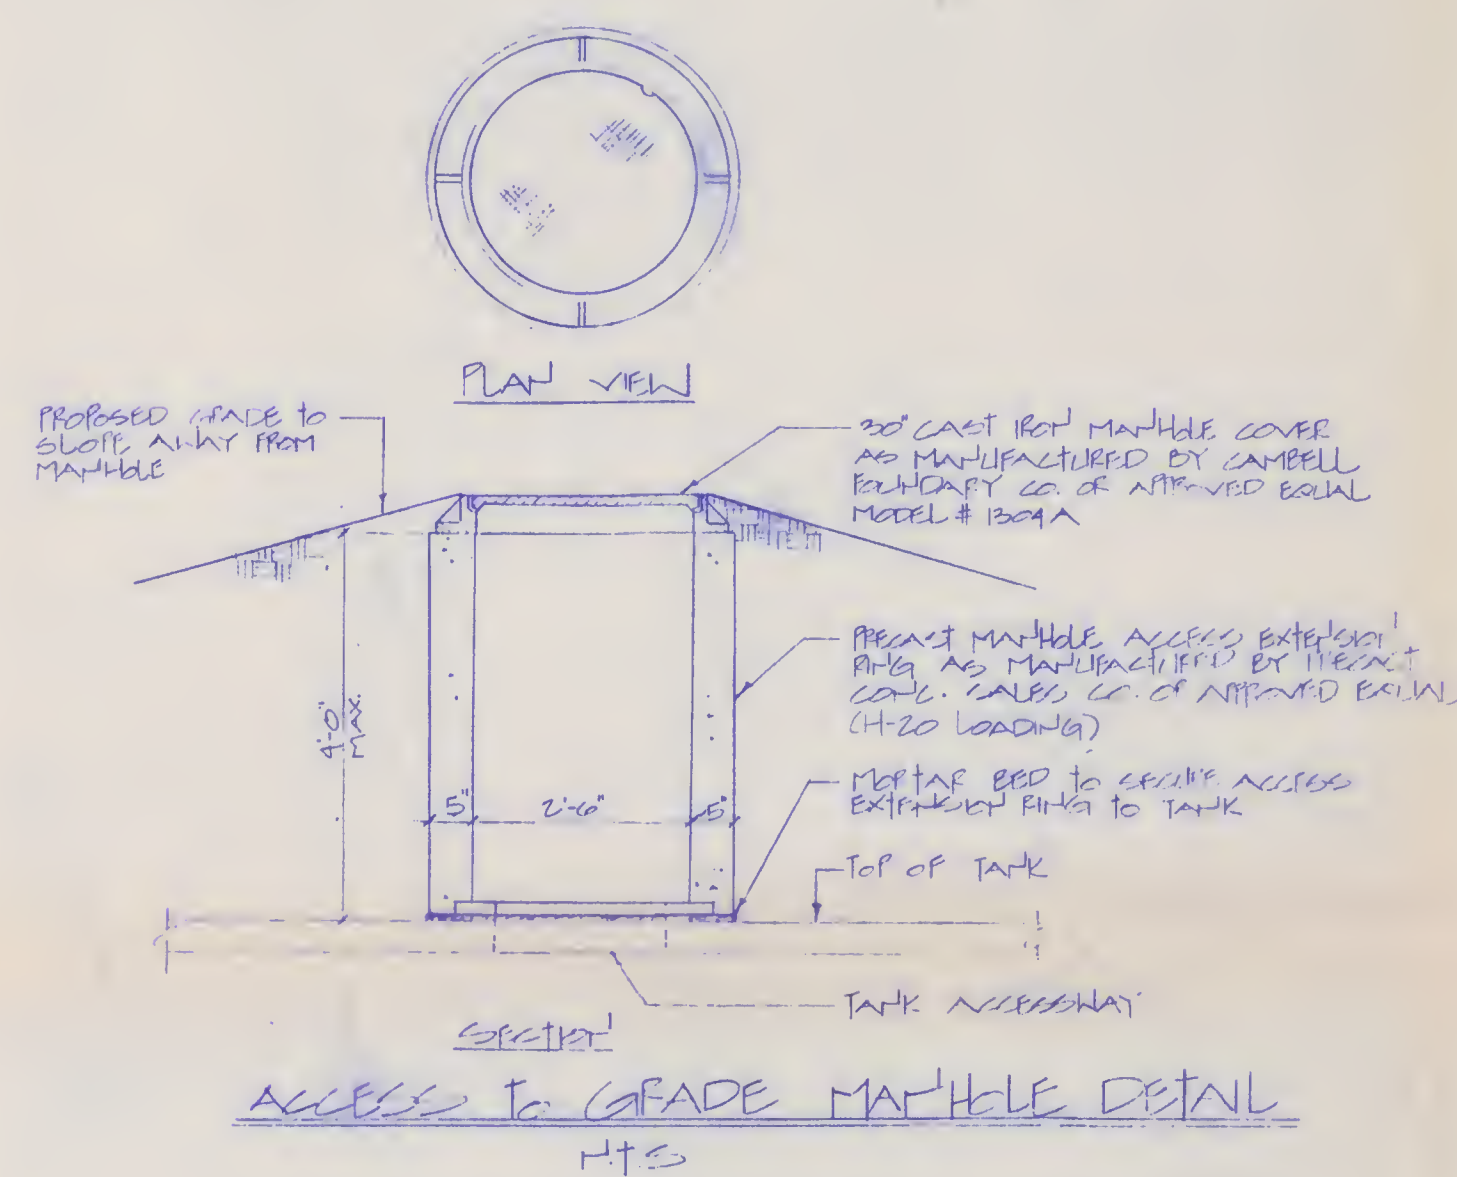 PLAN VIEW
PROPOSED GRADE TO
SLOPE AWAY FROM
MANHOLE
30" CAST IRON MANHOLE COVER
AS MANUFACTURED BY CAMBELL
FOUNDARY CO. OR APPROVED EQUAL
MODEL # 1304A
PRECAST MANHOLE ACCESS EXTENSION
RING AS MANUFACTURED BY PRECAST
CONC. SALES CO. OR APPROVED EQUAL
(H-20 LOADING)
4'-0"
MAX.
MORTAR BED TO SECURE ACCESS
EXTENSION RING TO TANK
5" 2'-6" 5"
TOP OF TANK
TANK ACCESSWAY
SECTION
ACCESS TO GRADE MANHOLE DETAIL
N.T.S